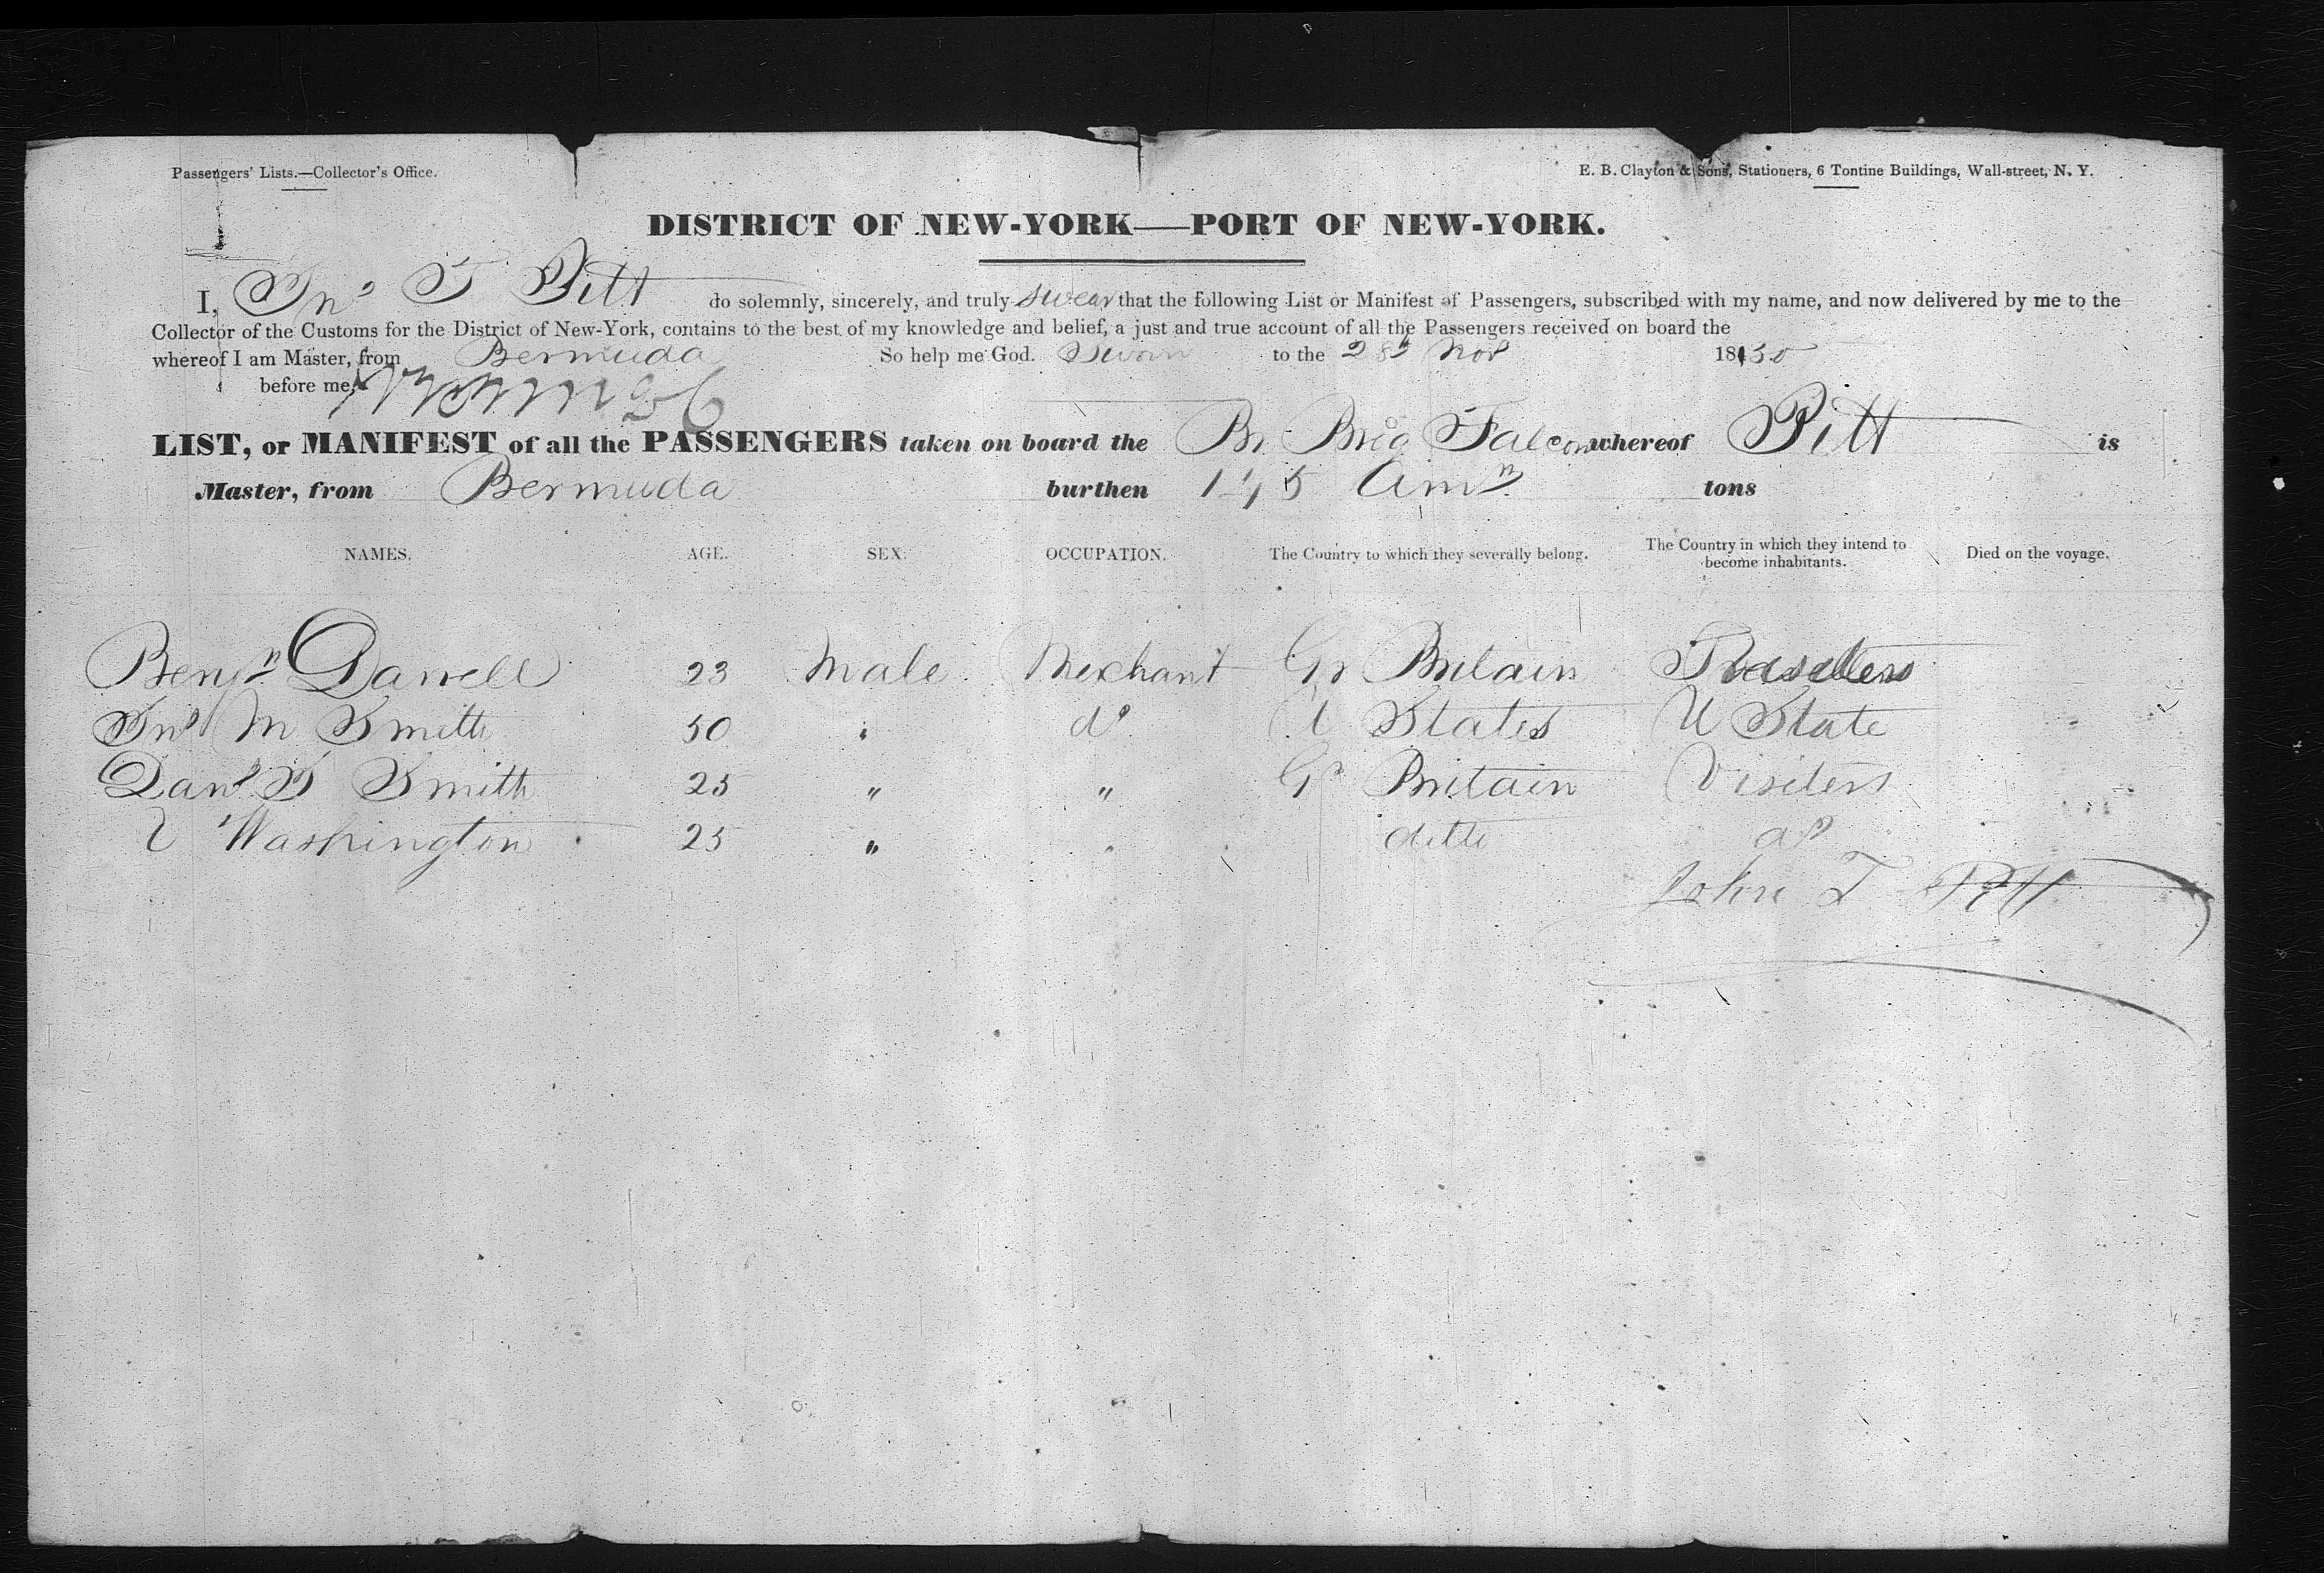 Passengers' Lists.—Collector's Office.
E. B. Clayton & Sons, Stationers, 6 Tontine Buildings, Wall-street, N. Y.
DISTRICT OF NEW-YORK—PORT OF NEW-YORK.
I, Jno T Pitt do solemnly, sincerely, and truly swear that the following List or Manifest of Passengers, subscribed with my name, and now delivered by me to the
Collector of the Customs for the District of New-York, contains to the best of my knowledge and belief, a just and true account of all the Passengers received on board the
whereof I am Master, from Bermuda So help me God. Sworn to the 28th Nov 1850
before me,
LIST, or MANIFEST of all the PASSENGERS taken on board the Br Brig Falcon whereof Pitt is
Master, from Bermuda burthen 145 tons
NAMES. AGE. SEX. OCCUPATION. The Country to which they severally belong. The Country in which they intend to become inhabitants. Died on the voyage.
Benjn Darrell 23 Male Merchant Gr Britain
Jno M Smith 50 " do U States U State
Danl S Smith 25 " " Gr Britain Visiters
Washington 25 " " ditto do
John T Pitt